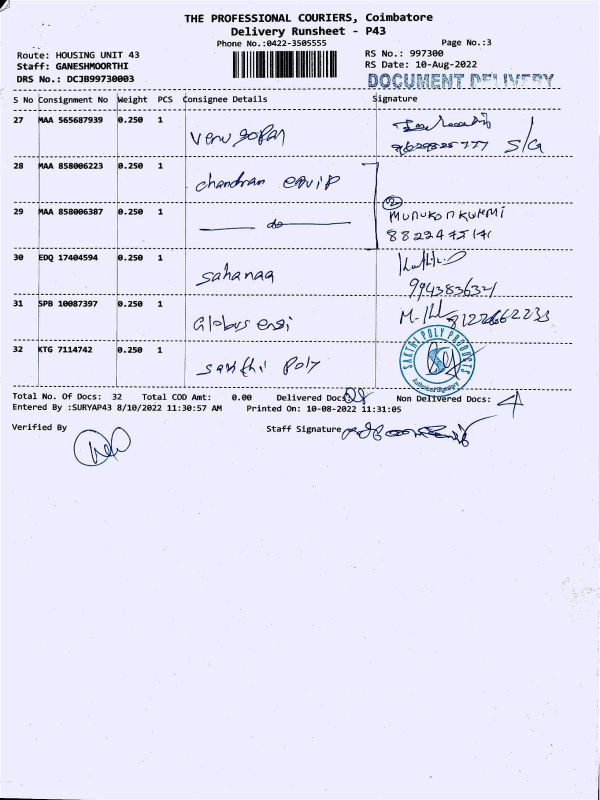 THE PROFESSIONAL COURIERS, Coimbatore
Delivery Runsheet - P43
Phone No.:0422-3505555
Page No.:3
Route: HOUSING UNIT 43
RS No.: 997300
Staff: GANESHMOORTHI
RS Date: 10-Aug-2022
DRS No.: DCJB99730003
DOCUMENT DELIVERY
S No Consignment No Weight PCS Consignee Details Signature
27 MAA 565687939 0.250 1 Venu gopal
S/G
28 MAA 858006223 0.250 1 chandran equip
29 MAA 858006387 0.250 1 — do —
2
8822475171
30 EDQ 17404594 0.250 1 sahanaa
9943836321
31 SPB 10087397 0.250 1 Globus engi
32 KTG 7114742 0.250 1 sakthi poly
SAKTHI POLY PRODUCTS
Authorised Signatory
Total No. Of Docs: 32 Total COD Amt: 0.00 Delivered Docs: 28 Non Delivered Docs: 4
Entered By :SURYAP43 8/10/2022 11:30:57 AM Printed On: 10-08-2022 11:31:05
Verified By
Staff Signature